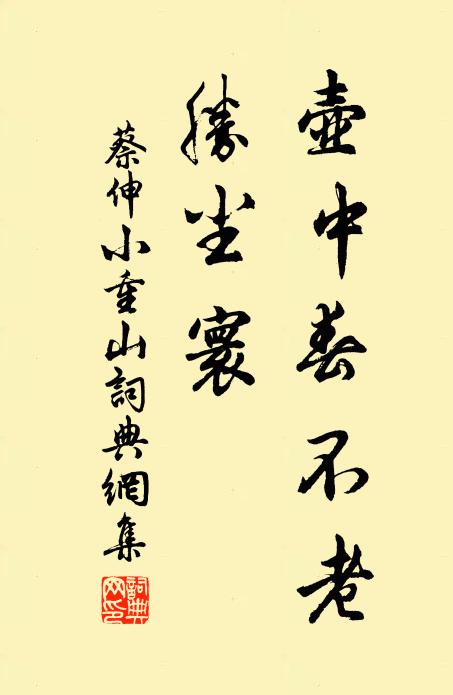 壺中春不老
勝尘寰
蔡伸小重山詞典網集
詞典网印